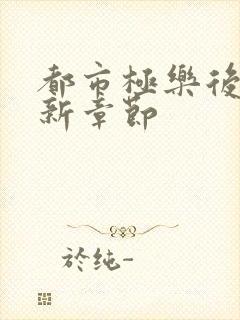 都市極樂後
新章節
於纯-